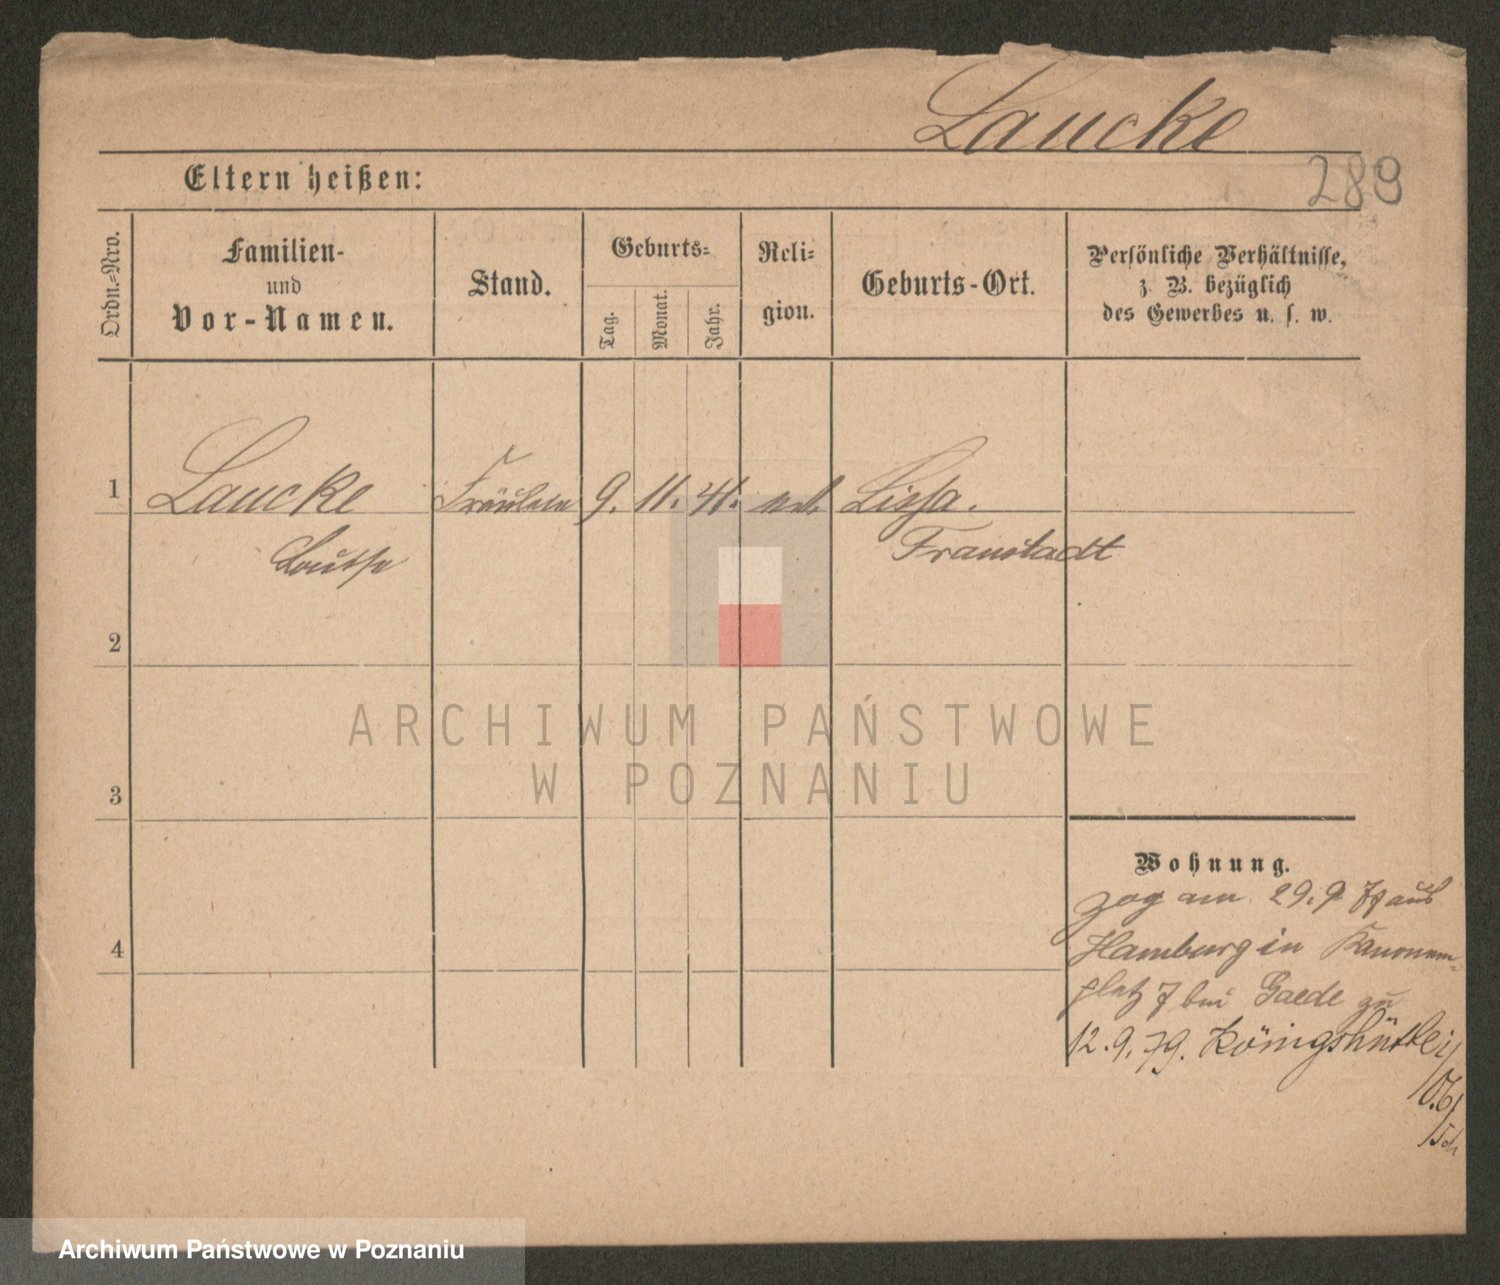 Laucke
289
Eltern heißen:
Ordn.-Nro.
Familien-
und
Vor-Namen.
Stand.
Geburts-
Tag.
Monat.
Jahr.
Reli-
gion.
Geburts-Ort.
Persönliche Verhältnisse,
z. B. bezüglich
des Gewerbes u. s. w.
1 Laucke Fräulein 9. 11. 41. Lissa.
Louise Fraustadt
2
3
4
ARCHIWUM PAŃSTWOWE
W POZNANIU
Wohnung.
zog am 29.9 79 aus
Hamburg in Kanonen-
platz 7 bei Gaede zu
12.9.79. Königshütte
Archiwum Państwowe w Poznaniu